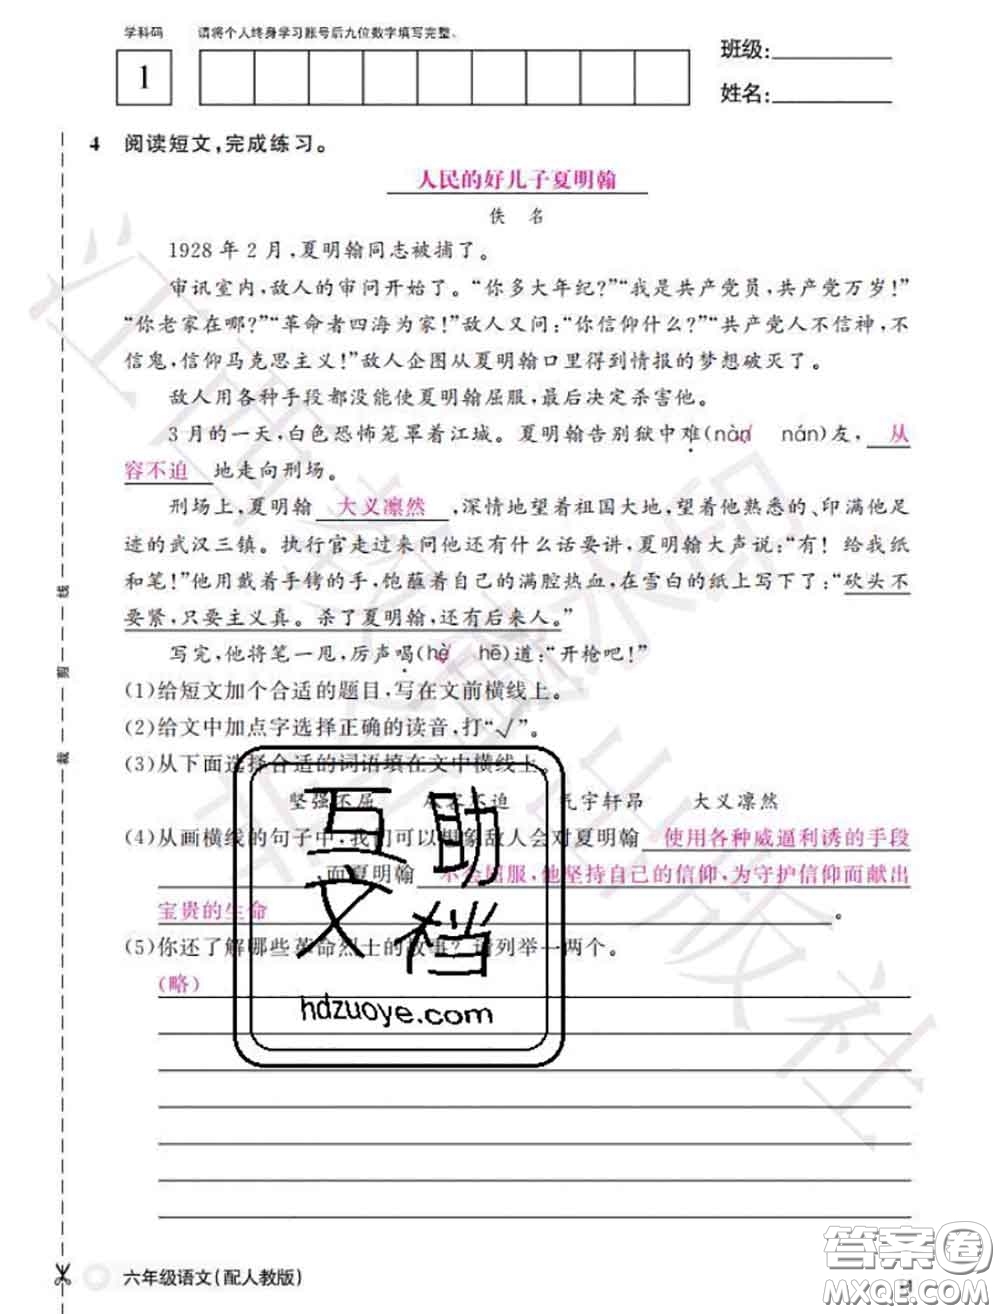 学科码 请将个人终身学习账号后九位数字填写完整。
1
班级:
姓名:
4 阅读短文,完成练习。
人民的好儿子夏明翰
佚 名
1928 年 2 月,夏明翰同志被捕了。
审讯室内,敌人的审问开始了。“你多大年纪?”“我是共产党员,共产党万岁!”
“你老家在哪?”“革命者四海为家!”敌人又问:“你信仰什么?”“共产党人不信神,不
信鬼,信仰马克思主义!”敌人企图从夏明翰口里得到情报的梦想破灭了。
敌人用各种手段都没能使夏明翰屈服,最后决定杀害他。
3 月的一天,白色恐怖笼罩着江城。夏明翰告别狱中难(nàn√ nán)友, 从
容不迫 地走向刑场。
刑场上,夏明翰 大义凛然 ,深情地望着祖国大地,望着他熟悉的、印满他足
迹的武汉三镇。执行官走过来问他还有什么话要讲,夏明翰大声说:“有! 给我纸
和笔!”他用戴着手铐的手,饱蘸着自己的满腔热血,在雪白的纸上写下了:“砍头不
要紧,只要主义真。杀了夏明翰,还有后来人。”
写完,他将笔一甩,厉声喝(hè√ hē)道:“开枪吧!”
(1)给短文加个合适的题目,写在文前横线上。
(2)给文中加点字选择正确的读音,打“√”。
(3)从下面选择合适的词语填在文中横线上。
坚强不屈 从容不迫 气宇轩昂 大义凛然
(4)从画横线的句子中,我们可以想象敌人会对夏明翰 使用各种威逼利诱的手段
,而夏明翰 不会屈服,他坚持自己的信仰,为守护信仰而献出
宝贵的生命 。
(5)你还了解哪些革命烈士的故事?请列举一两个。
(略)
裁 剪 线
互助
文档
hdzuoye.com
六年级语文(配人教版)
答案卷
MXQE.COM